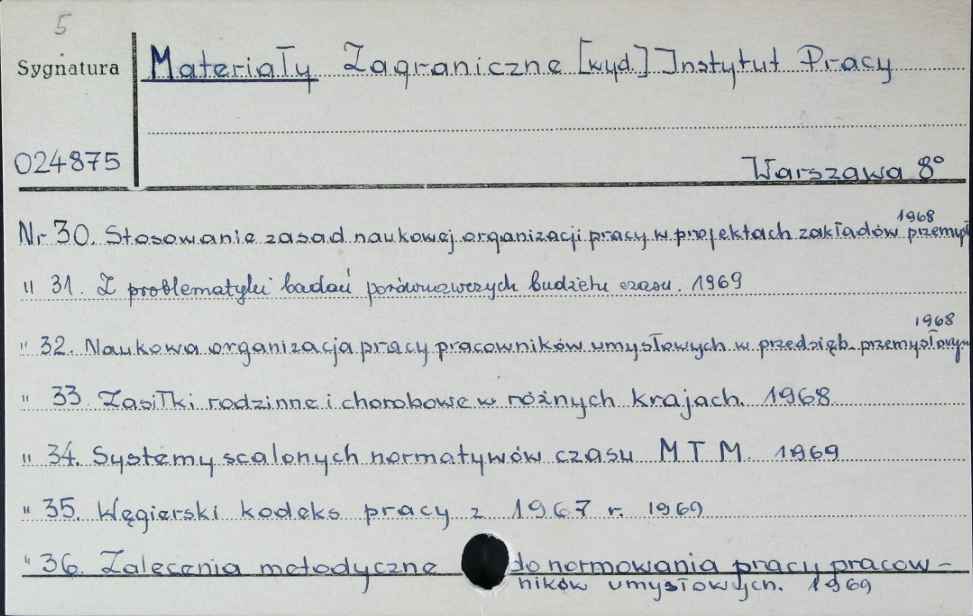 5
Sygnatura
Materiały Zagraniczne [wyd.] Instytut Pracy
024875
Warszawa 8°
1968
Nr 30. Stosowanie zasad naukowej organizacji pracy w projektach zakładów przemysł
" 31. Z problematyki badań porównawczych budżetu czasu. 1969
1968
" 32. Naukowa organizacja pracy pracowników umysłowych w przedsięb. przemysłowym
" 33 Zasiłki rodzinne i chorobowe w różnych krajach. 1968
" 34. Systemy scalonych normatywów czasu MTM 1969
" 35. Węgierski kodeks pracy z 1967 r. 1969
" 36. Zalecenia metodyczne do normowania pracy pracow-
ników umysłowych. 1969